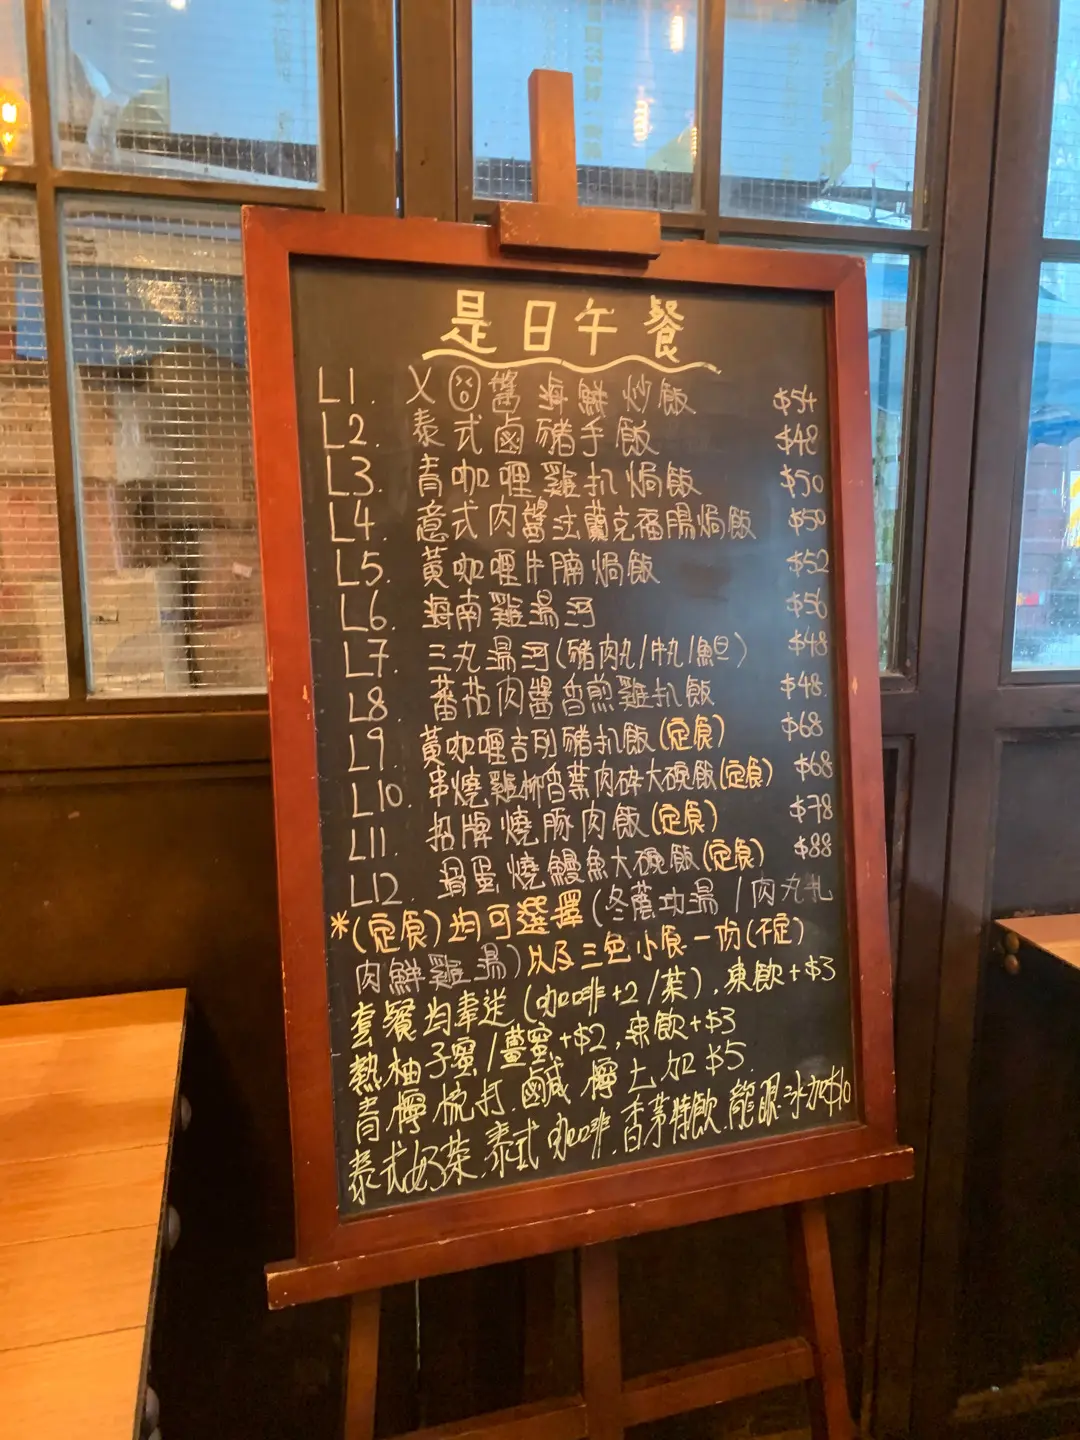 是日午餐
L1. X😣醬海鮮炒飯 $54
L2. 泰式鹵豬手飯 $48
L3. 青咖喱雞扒焗飯 $50
L4. 意式肉醬法蘭克福腸焗飯 $50
L5. 黃咖喱牛腩焗飯 $52
L6. 海南雞湯河 $56
L7. 三丸湯河(豬肉丸/牛丸/魚旦) $48
L8. 蕃茄肉醬香煎雞扒飯 $48
L9. 黃咖喱吉列豬扒飯(定食) $68
L10. 串燒雞柳香葉肉碎大碗飯(定食) $68
L11. 招牌燒豚肉飯(定食) $78
L12. 滑蛋燒鰻魚大碗飯(定食) $88
*(定食)均可選擇(冬蔭功湯/肉丸
肉鮮雞湯)以及三色小食一份(不定)
套餐均奉送(咖啡+2/茶),凍飲+$3
熱柚子蜜/薑蜜+$2,凍飲+$3
青檸梳打.鹵咸檸七加$5
泰式奶茶.泰式咖啡.香茅特飲.龍眼冰加$10